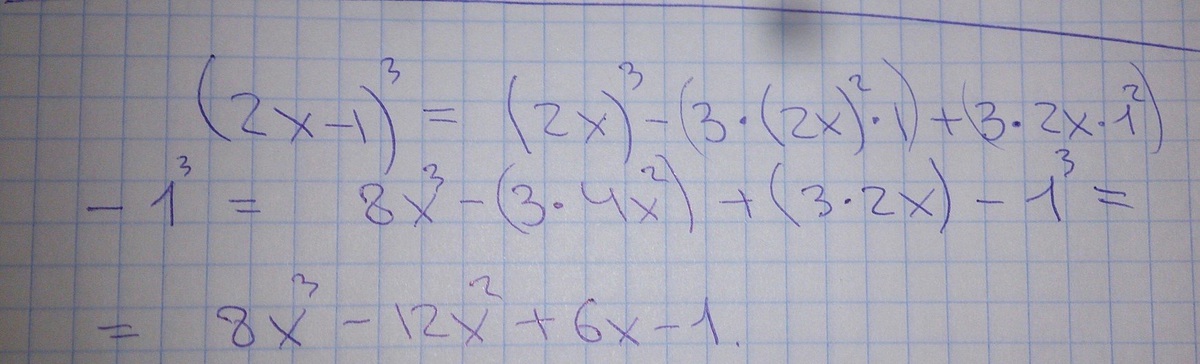 (2x-1)³ = (2x)³-(3·(2x)²·1)+(3·2x·1²)
- 1³ = 8x³-(3·4x²) + (3·2x) - 1³ =
= 8x³ - 12x² + 6x - 1.